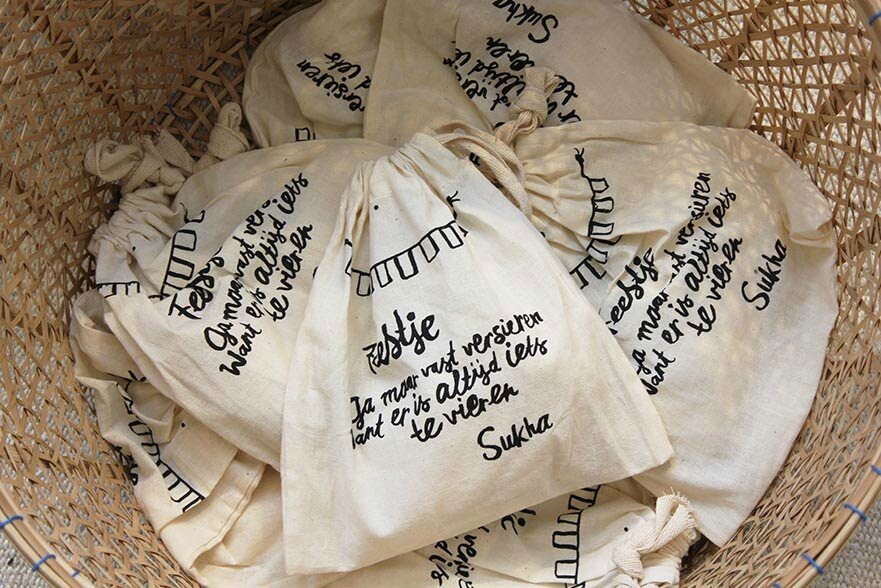 Sukha
Feestje
Ga maar vast versieren
Want er is altijd iets
te vieren
Sukha
Ga maar vast ver
Want er is altijd iets
te vieren
Feestje
Ga maar vast versieren
Want er is altijd iets
te vieren
Sukha